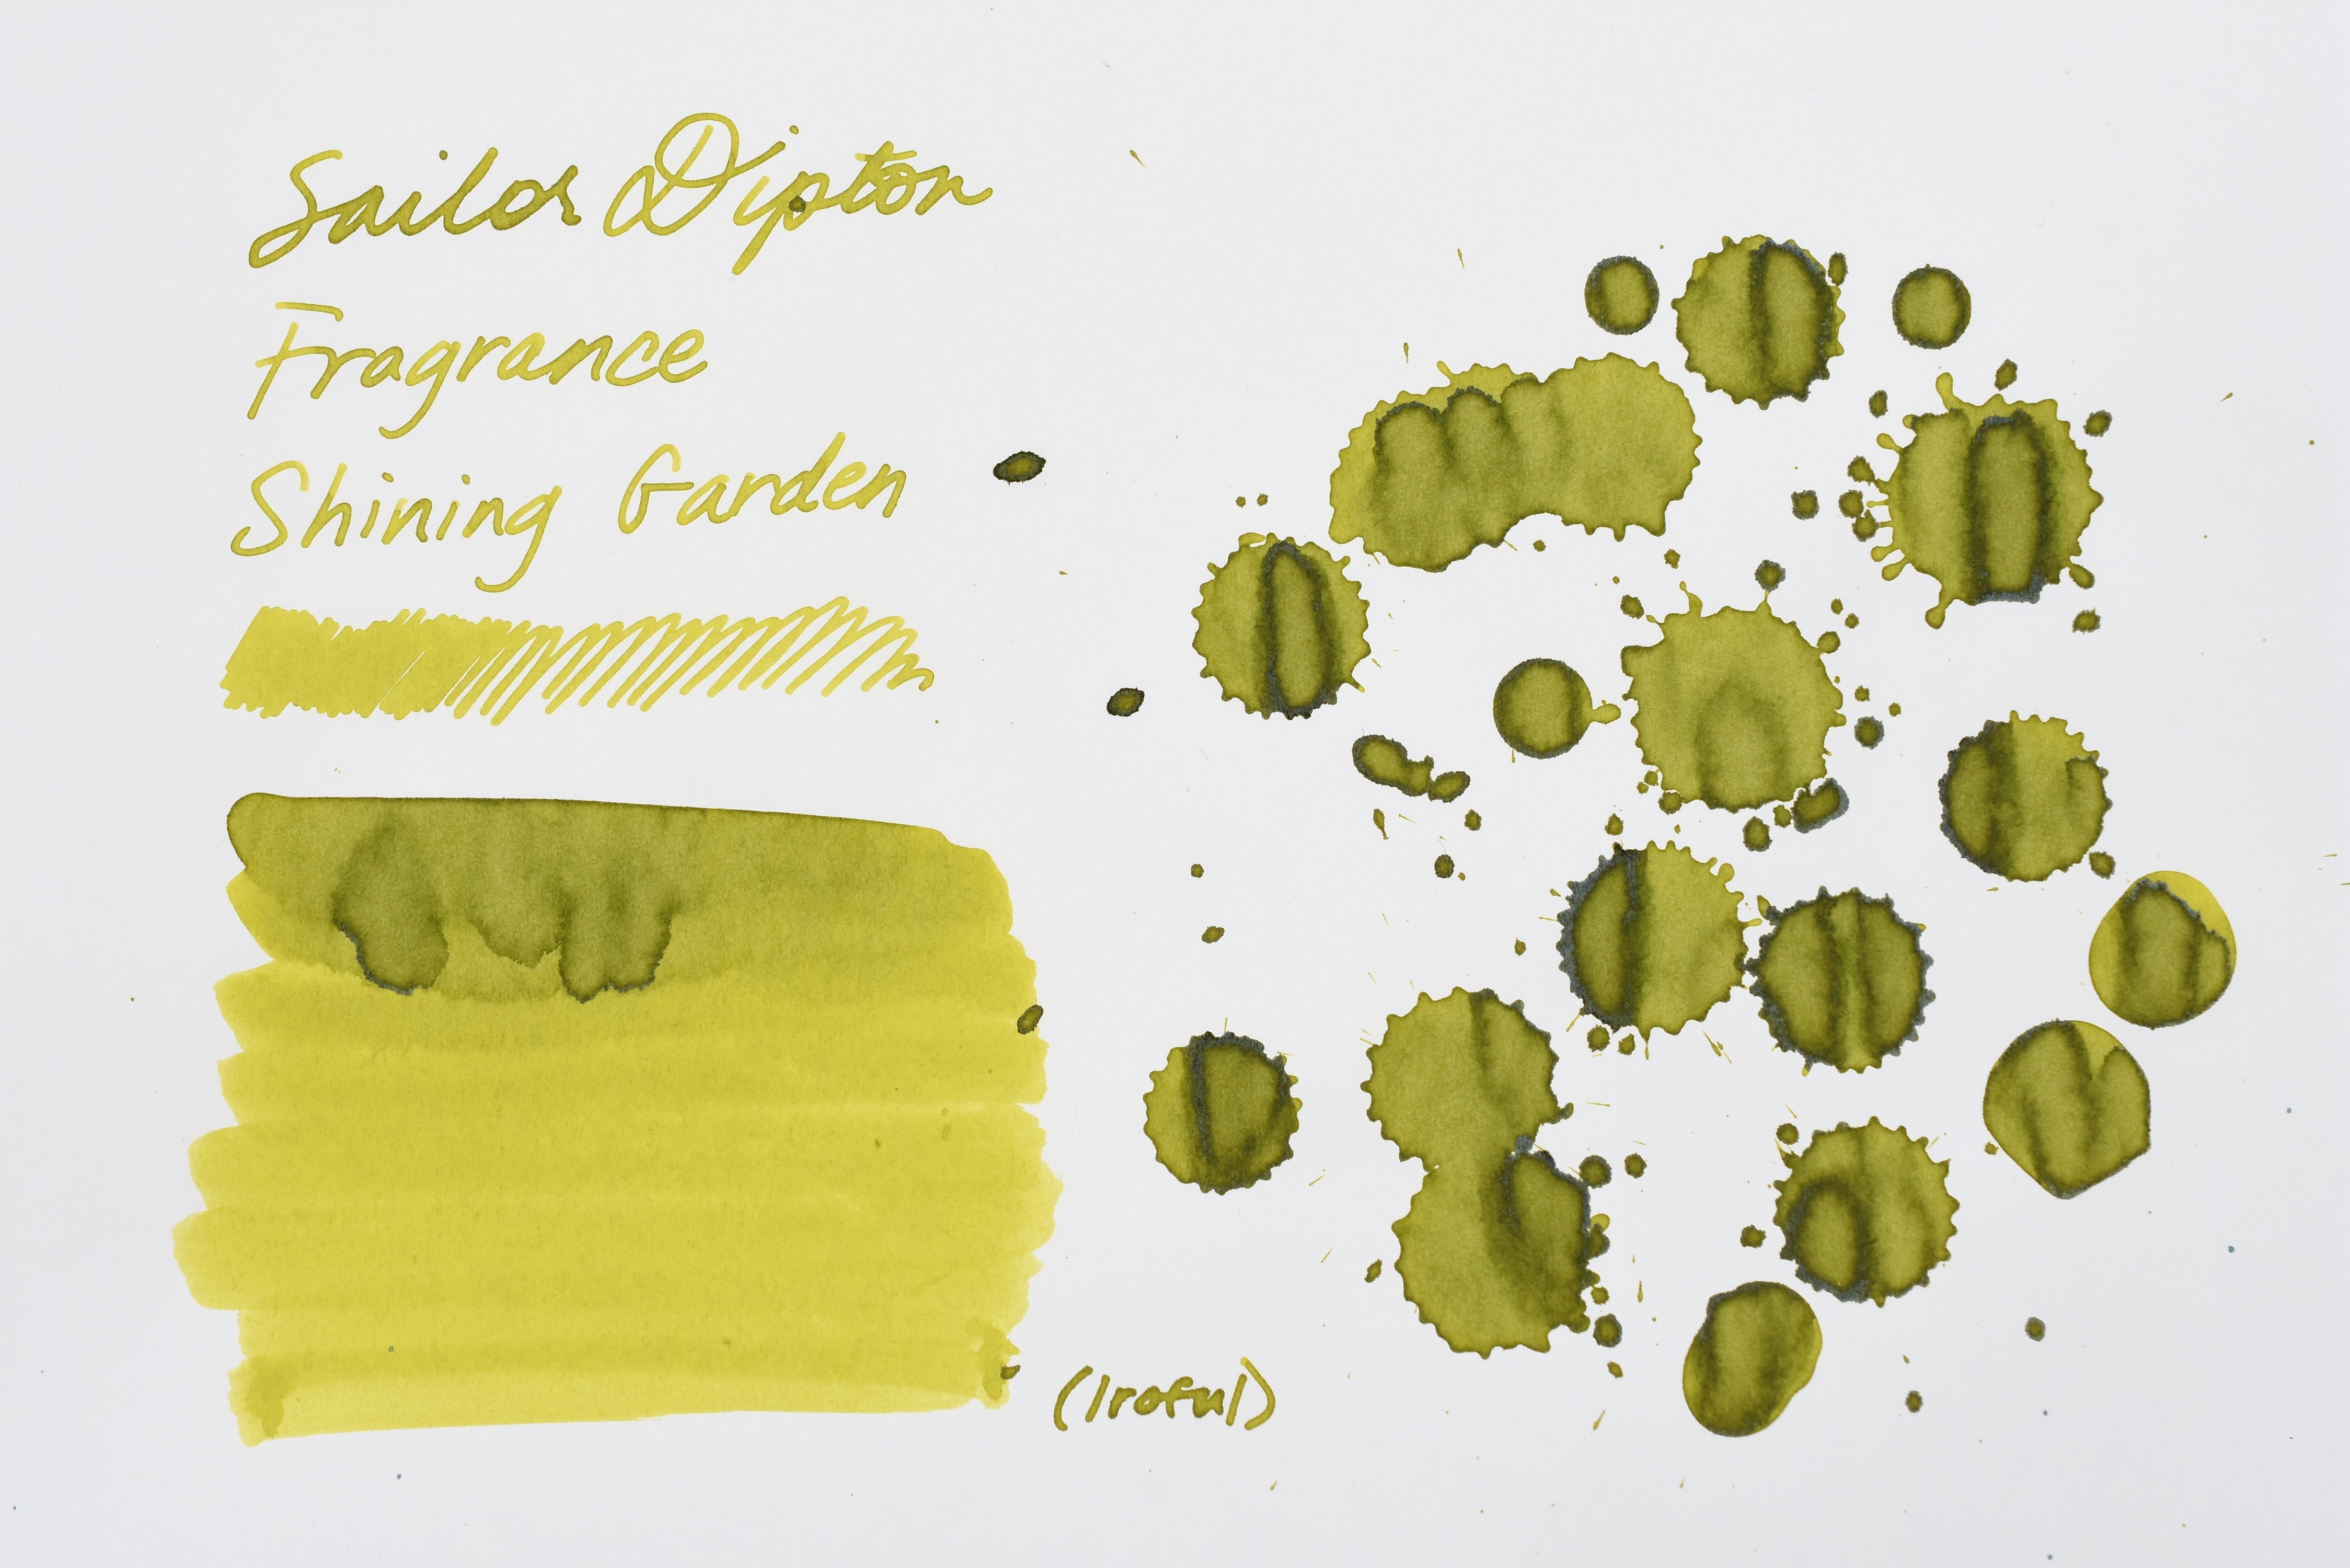 Sailor Dipton
Fragrance
Shining Garden
(Iroful)